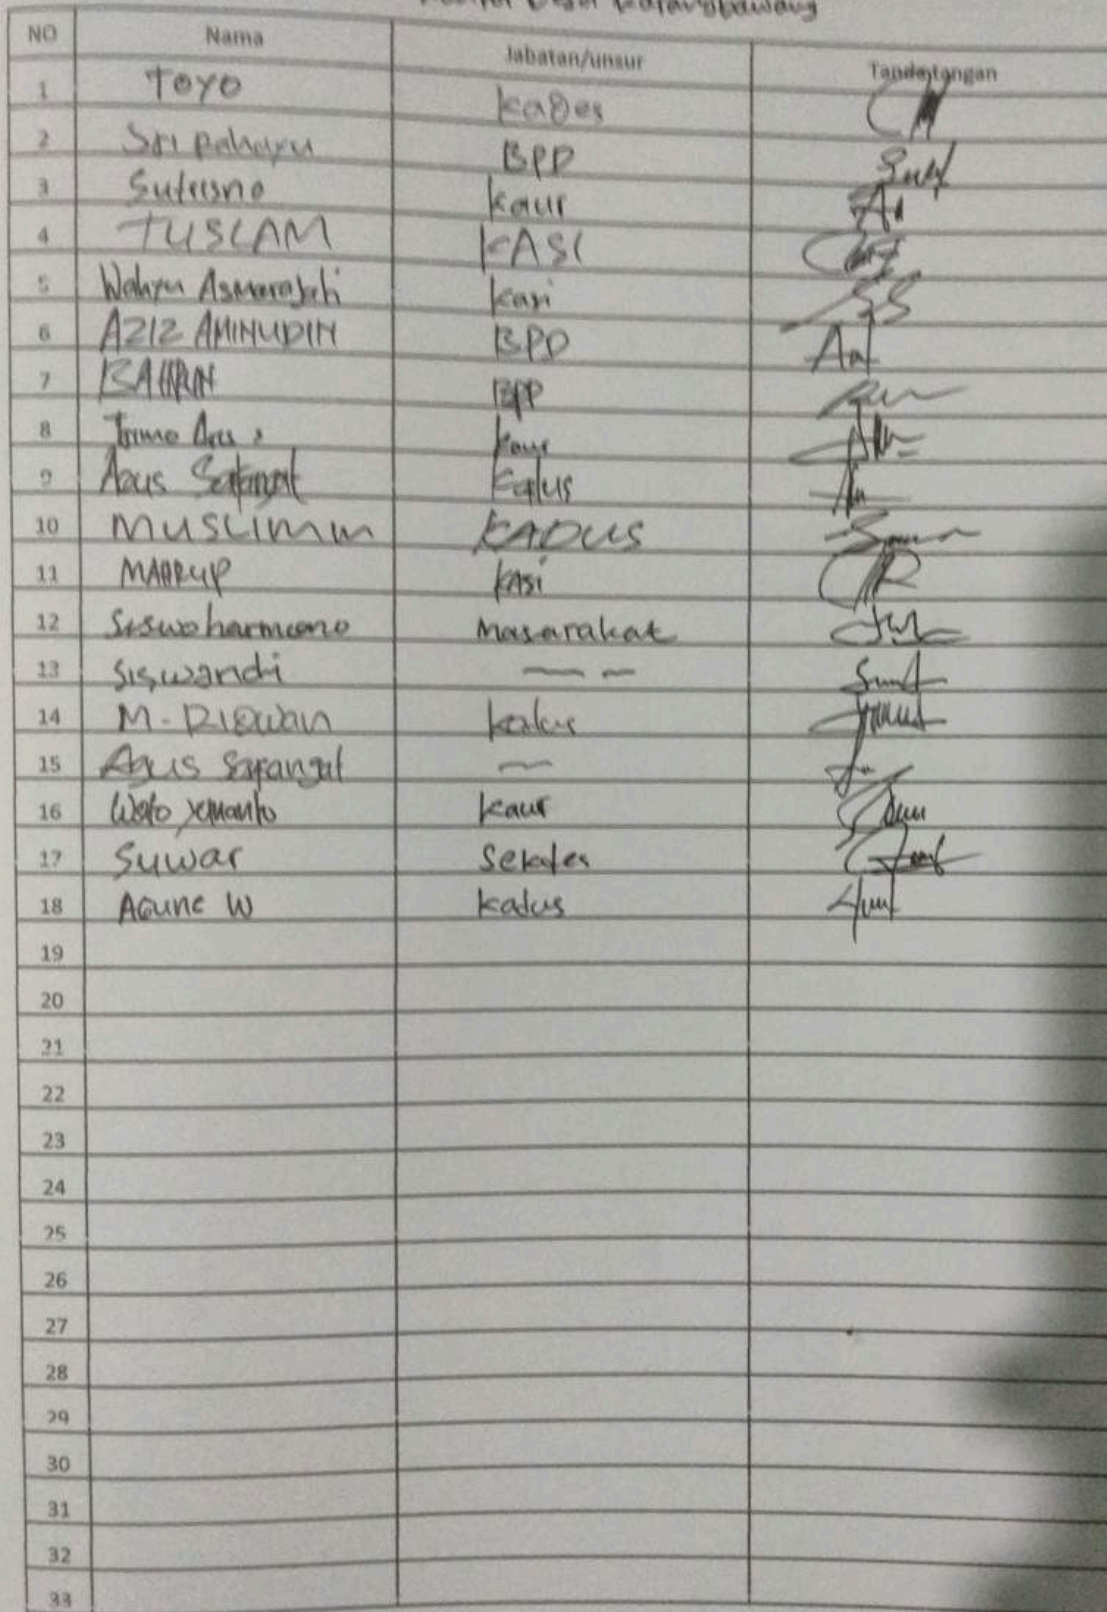 Kantor Desa Karangbawang
NO Nama Jabatan/unsur Tanda tangan
1 TOYO kades
2 Sri Rahayu BPD
3 Sutrisno kaur
4 TUSLAM KASI
5 Wahyu Asmarajati kasi
6 AZIZ AMINUDIN BPD
7 BAHRUN BPP
8 kaur
9 Agus Safangat Kadus
10 MUSLIMIN KADUS
11 MAHRUP KASi
12 Siswoharmono Masarakat
13 Siswandi — —
14 M. RIDWAN kadus
15 Agus Safangat —
16 kaur
17 Suwar Sekdes
18 AGUNG W kadus
19
20
21
22
23
24
25
26
27
28
29
30
31
32
33